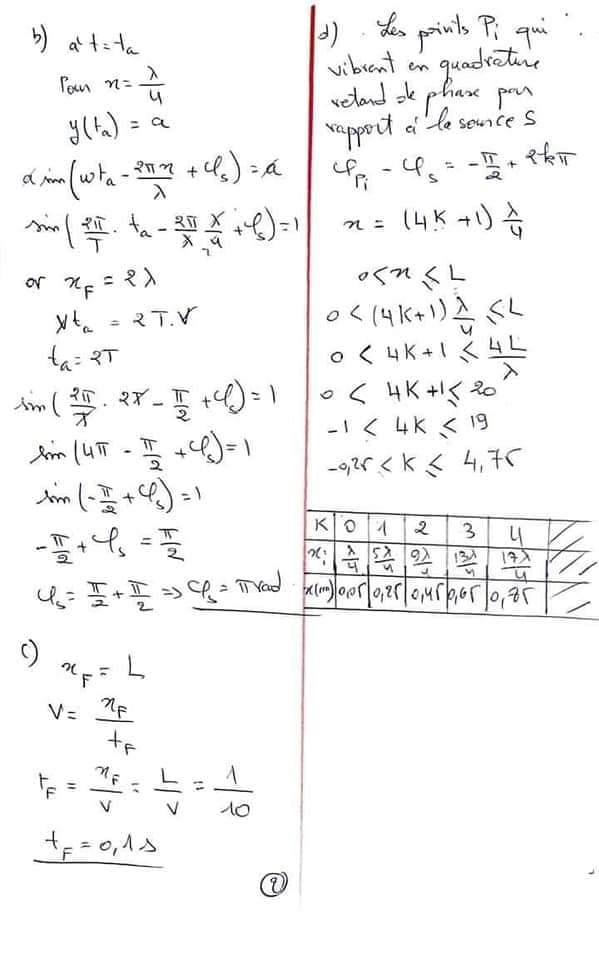 b) a' t = ta
Pour x = λ/4
y(ta) = a
a sin(ωta - 2πx/λ + φs) = a
sin(2π/T . ta - 2π/λ . λ/4 + φs) = 1
or xF = 2λ
Vta = 2T.V
ta = 2T
sin(2π/T . 2T - π/2 + φs) = 1
sin(4π - π/2 + φs) = 1
sin(-π/2 + φs) = 1
-π/2 + φs = π/2
φs = π/2 + π/2 => φs = π rad
c)
xF = L
V = xF/tF
tF = xF/V = L/V = 1/10
tF = 0,1s
d) . Les points Pi qui
vibrent en quadrature
retard de phase par
rapport à la source S
φPi - φs = -π/2 + 2kπ
x = (4K + 1) λ/4
0 < x ⩽ L
0 < (4K+1) λ/4 ⩽ L
0 < 4K + 1 ⩽ 4L/λ
0 < 4K + 1 ⩽ 20
-1 < 4K ⩽ 19
-0,25 < K ⩽ 4,75
K 0 1 2 3 4
xi λ/4 5λ/4 9λ/4 13λ/4 17λ/4
x(m) 0,05 0,25 0,45 0,65 0,85
2